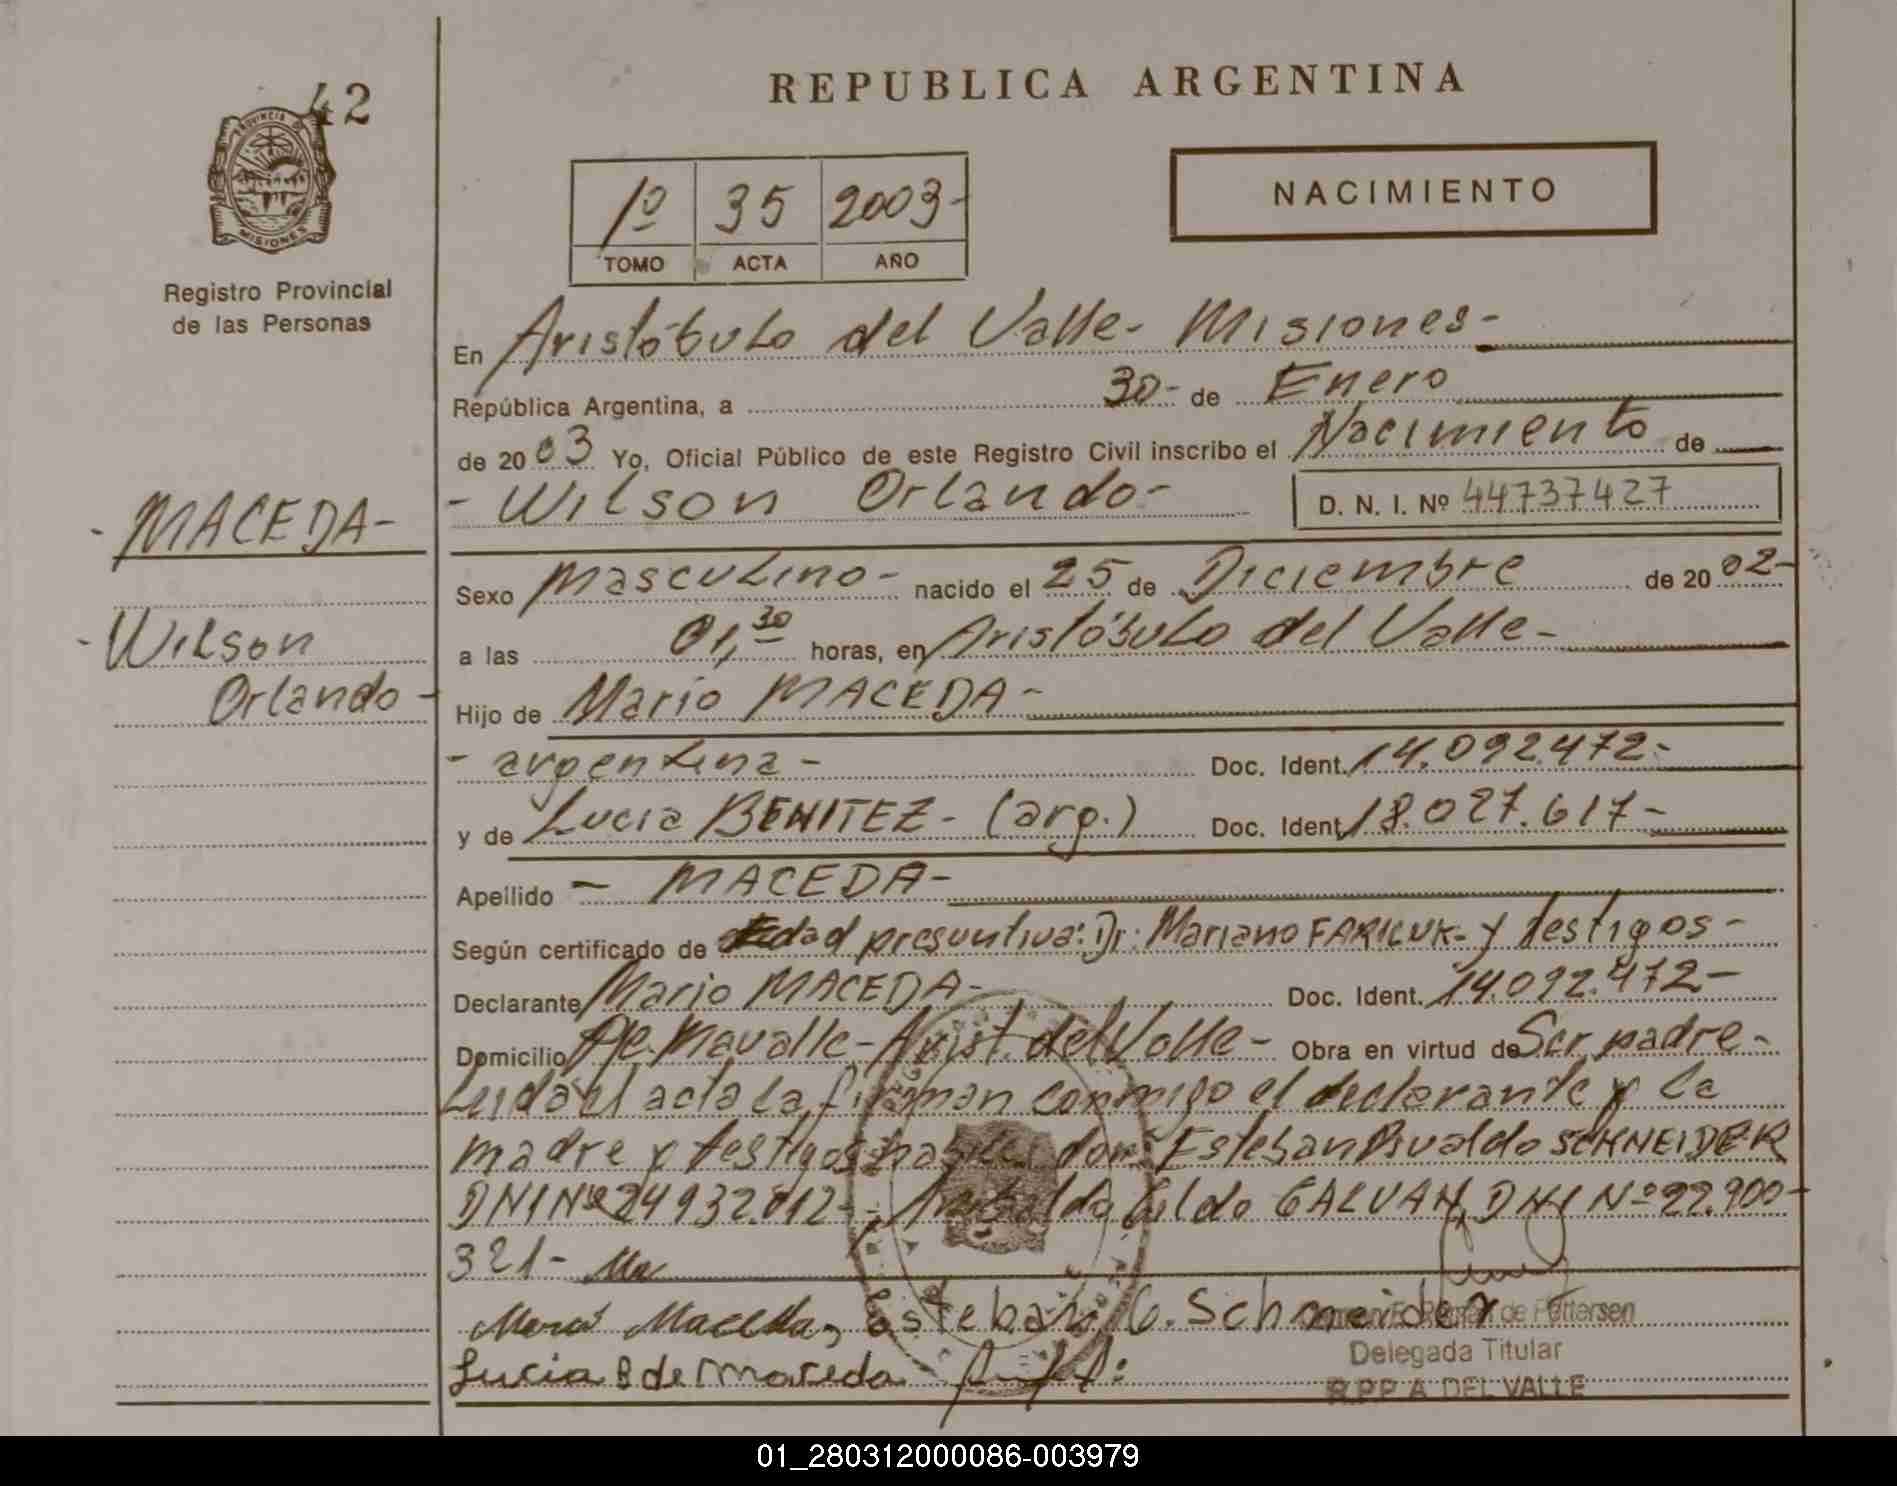 42
PROVINCIA DE
MISIONES
Registro Provincial
de las Personas
REPUBLICA ARGENTINA
1º 35 2003-
TOMO ACTA AÑO
NACIMIENTO
En Aristóbulo del Valle- Misiones-
República Argentina, a 30- de Enero
de 2003 Yo, Oficial Público de este Registro Civil inscribo el Nacimiento de
- Wilson Orlando- D. N. I. Nº 44737427
- MACEDA-
- Wilson
Orlando-
Sexo Masculino- nacido el 25 de Diciembre de 2002-
a las 01,30 horas, en Aristóbulo del Valle-
Hijo de Mario MACEDA-
- argentina- Doc. Ident. 14.092.472-
y de Lucia BENITEZ- (arg.) Doc. Ident. 18.027.617-
Apellido - MACEDA-
Según certificado de edad presuntiva: Dr. Mariano y testigos-
Declarante Mario MACEDA- Doc. Ident. 14.092.472-
Domicilio Arist. del Valle- Obra en virtud de Ser padre-
Leida el acta la firman conmigo el declarante y la
madre y testigos Esteban SCHNEIDER
DNI Nº 24932.012- GALVAN, DNI Nº 22.900-
321-
Maceda, Esteban O. Schneider de Pettersen
Delegada Titular
Lucia B de Maceda
R.P.P. A. DEL VALLE
01_280312000086-003979